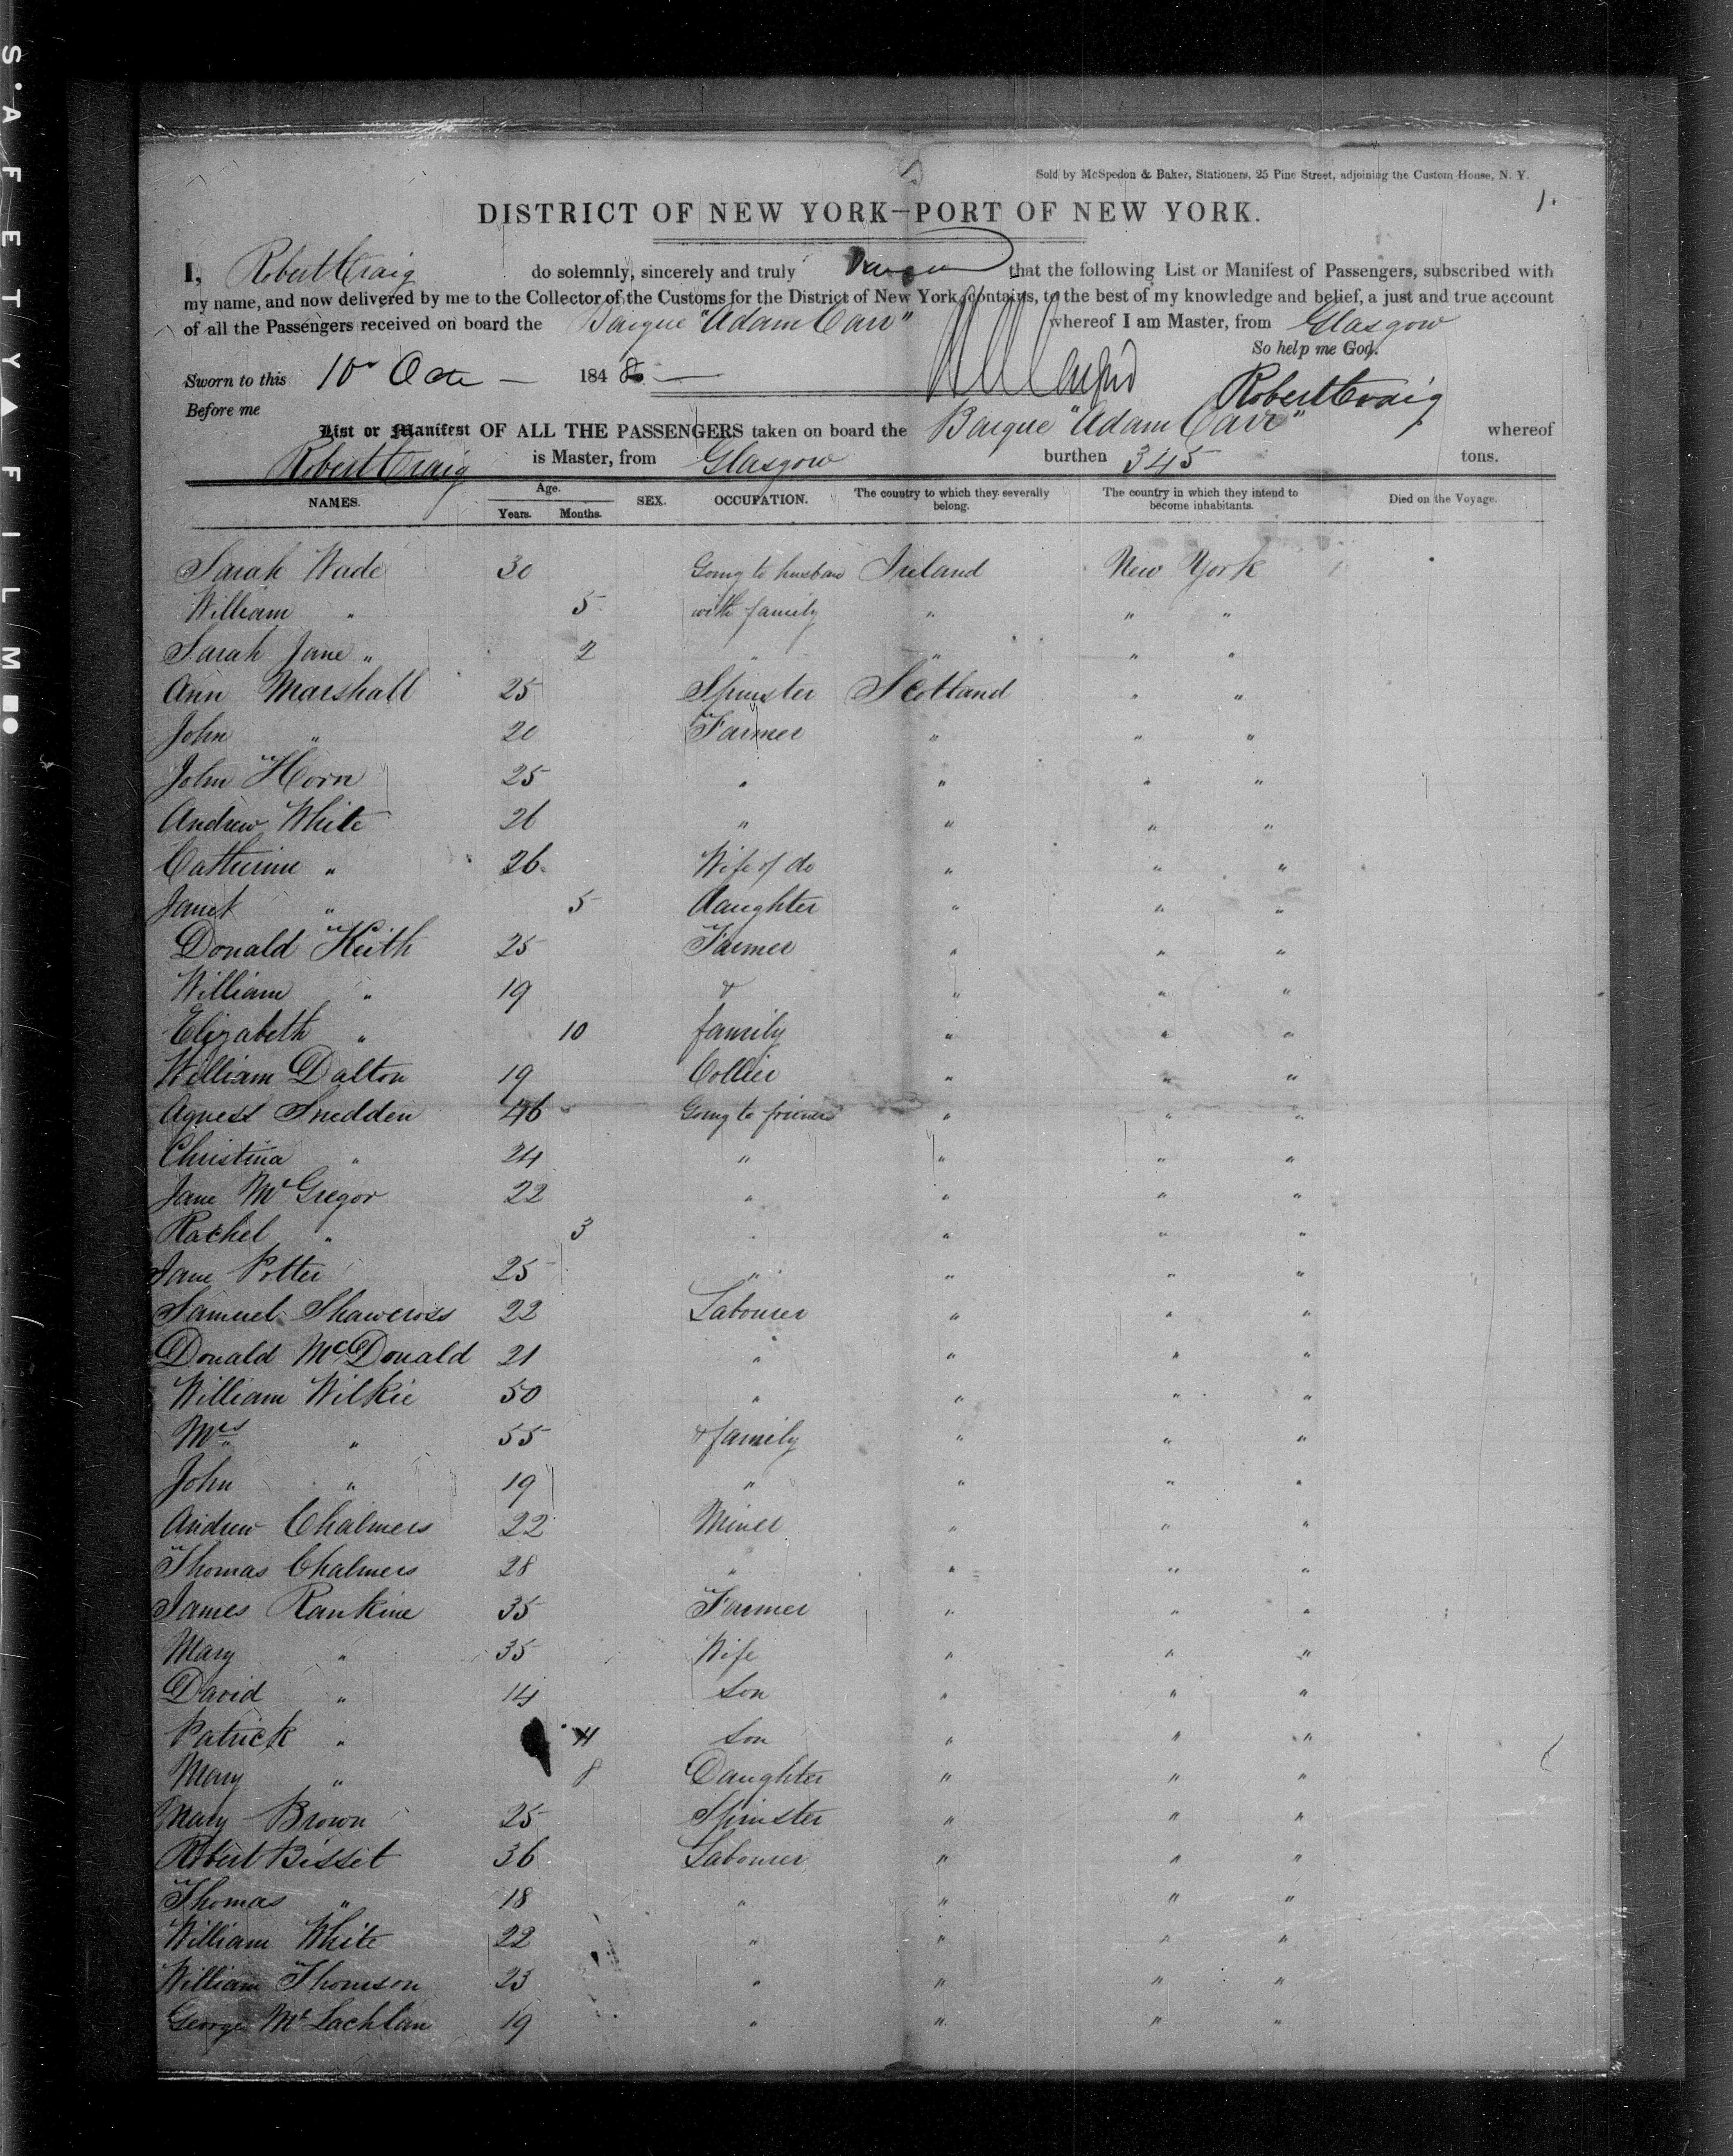 SAFETY FILM
Sold by McSpedon & Baker, Stationers, 25 Pine Street, adjoining the Custom House, N. Y.
1.
DISTRICT OF NEW YORK—PORT OF NEW YORK.
I, Robert Craig do solemnly, sincerely and truly that the following List or Manifest of Passengers, subscribed with
my name, and now delivered by me to the Collector of the Customs for the District of New York, contains, to the best of my knowledge and belief, a just and true account
of all the Passengers received on board the Barque "Adam Carr" whereof I am Master, from Glasgow
So help me God.
Sworn to this 10 Octr 1848
Robert Craig
Before me
List or Manifest OF ALL THE PASSENGERS taken on board the Barque "Adam Carr" whereof
Robert Craig is Master, from Glasgow burthen 345 tons.
NAMES. Age. Years. Months. SEX. OCCUPATION. The country to which they severally belong. The country in which they intend to become inhabitants. Died on the Voyage.
Sarah Wade 30 Going to husban Ireland New York
William " 5 with family " " "
Sarah Jane " 2 " " " "
Ann Marshall 25 Spinster Scotland " "
John " 20 Farmer " " "
John Horn 25 " " " "
Andrew White 26 " " " "
Catherine " 26 Wife of do " " "
Janet " 5 daughter " " "
Donald Keith 25 Farmer " " "
William " 19 & " " "
Elizabeth " 10 family " " "
William Dalton 19 Collier " " "
Agness Snedden 46 Going to friends " " "
Christina " 24 " " " "
Jane McGregor 22 " " " "
Rachel " 3 " " " "
Jane Potter 25 " " " "
Samuel Shawcross 22 Labourer " " "
Donald McDonald 21 " " " "
William Wilkie 50 " " " "
Mrs " 55 & family " " "
John " 19 " " " "
Andrew Chalmers 22 Miner " " "
Thomas Chalmers 28 " " " "
James Rankine 35 Farmer " " "
Mary " 35 Wife " " "
David " 14 Son " " "
Patrick " 4 Son " " "
Mary " 8 Daughter " " "
Mary Brown 25 Spinster " " "
Robert Bisset 36 Labourer " " "
Thomas " 18 " " " "
William White 22 " " " "
William Thomson 23 " " " "
George McLachlan 19 " " " "